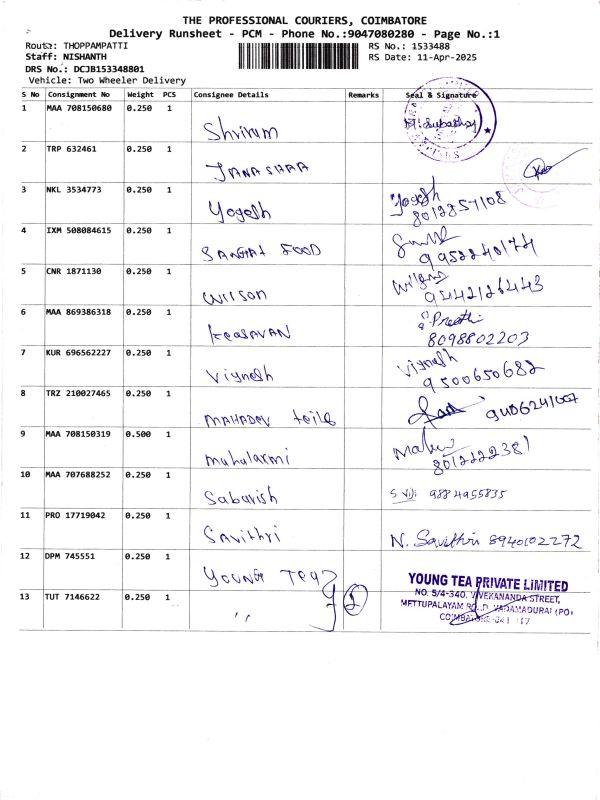 THE PROFESSIONAL COURIERS, COIMBATORE
Delivery Runsheet - PCM - Phone No.:9047080280 - Page No.:1
Route: THOPPAMPATTI RS No.: 1533488
Staff: NISHANTH RS Date: 11-Apr-2025
DRS No.: DCJB153348801
Vehicle: Two Wheeler Delivery
S No Consignment No Weight PCS Consignee Details Remarks Seal & Signature
1 MAA 708150680 0.250 1 Shriram
2 TRP 632461 0.250 1
3 NKL 3534773 0.250 1 Yogesh Yogesh 8012857108
4 IXM 508084615 0.250 1 FOOD 9952240174
5 CNR 1871130 0.250 1 Wilson 9442126443
6 MAA 869386318 0.250 1 Preethi 8098802203
7 KUR 696562227 0.250 1 Vignesh Vignesh 9500650682
8 TRZ 210027465 0.250 1 MAHADEV
9 MAA 708150319 0.500 1 muhalaxmi 8012222381
10 MAA 707688252 0.250 1 Sabarish 9884955835
11 PRO 17719042 0.250 1 Savithri N. Savithri 8940102272
12 DPM 745551 0.250 1 YOUNG TEA
YOUNG TEA PRIVATE LIMITED
NO. 5/4-340, VIVEKANANDA STREET,
METTUPALAYAM ROAD, VADAMADURAI (PO)
13 TUT 7146622 0.250 1 ,, 2